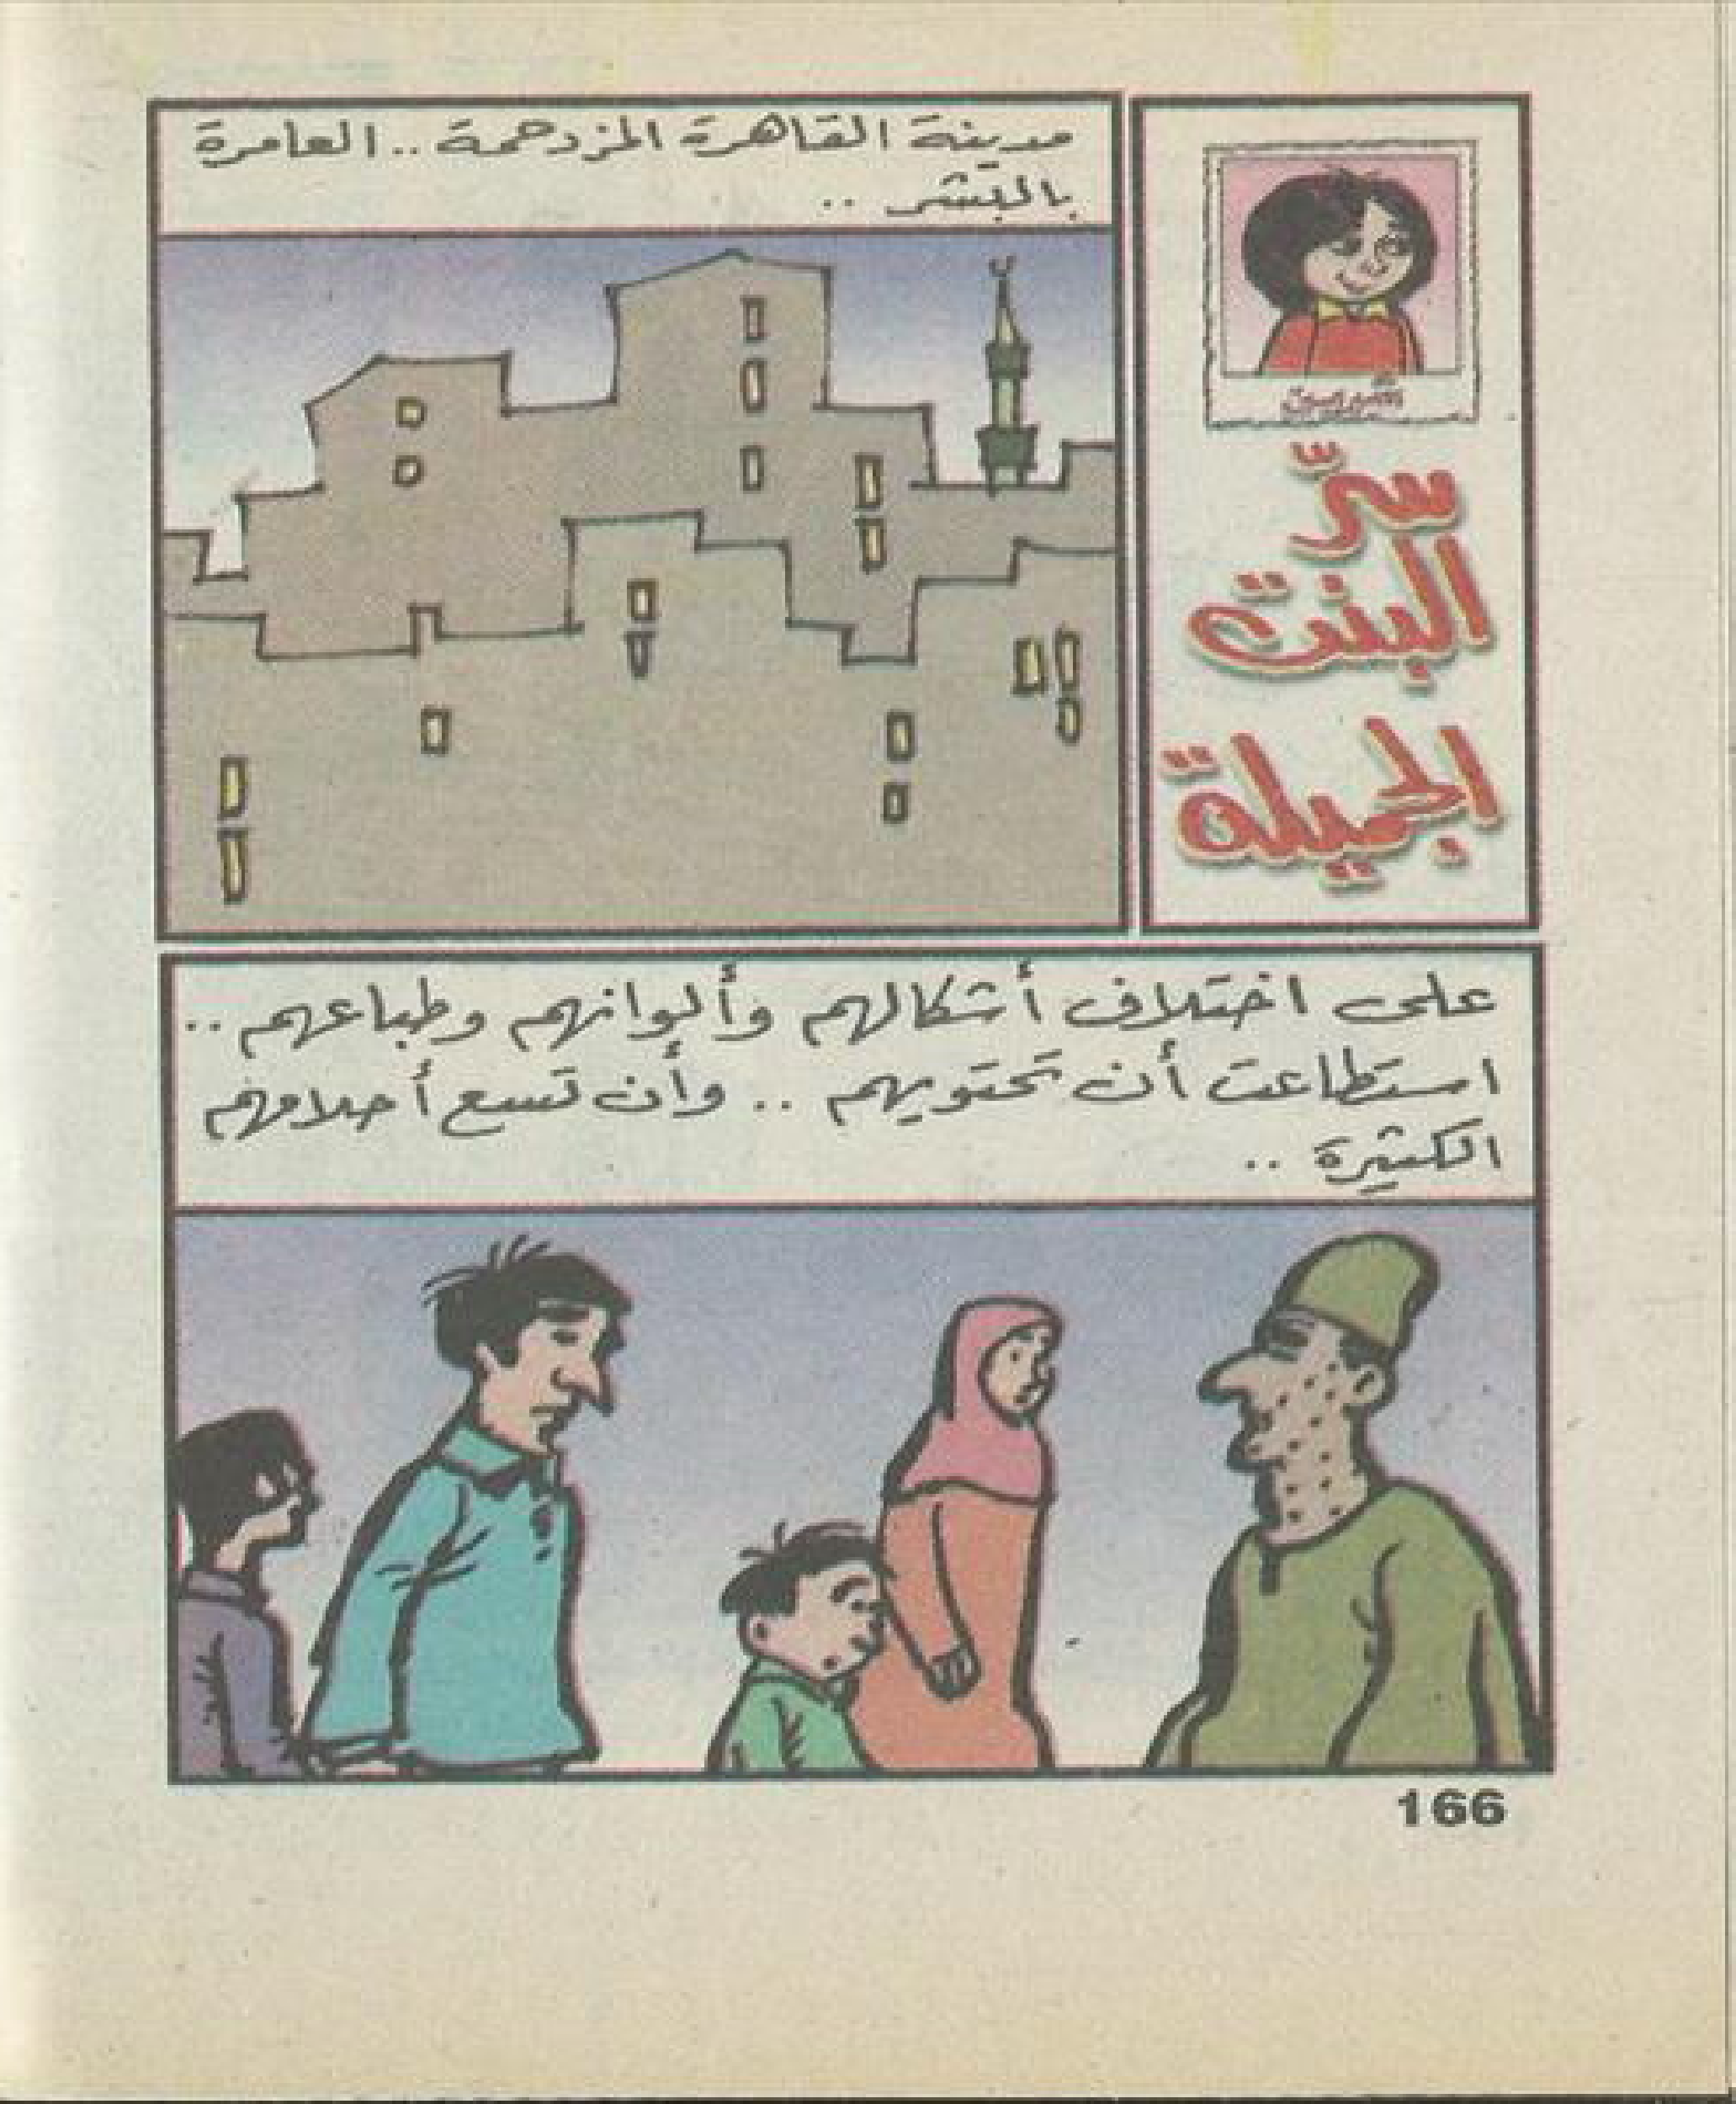 سرّ
البنت
الجميلة
مدينة القاهرة المزدحمة .. العامرة
بالبشر ..
على اختلاف أشكالهم وألوانهم وطباعهم ..
استطاعت أن تحتويهم .. وأن تسع أحلامهم
الكثيرة ..
166